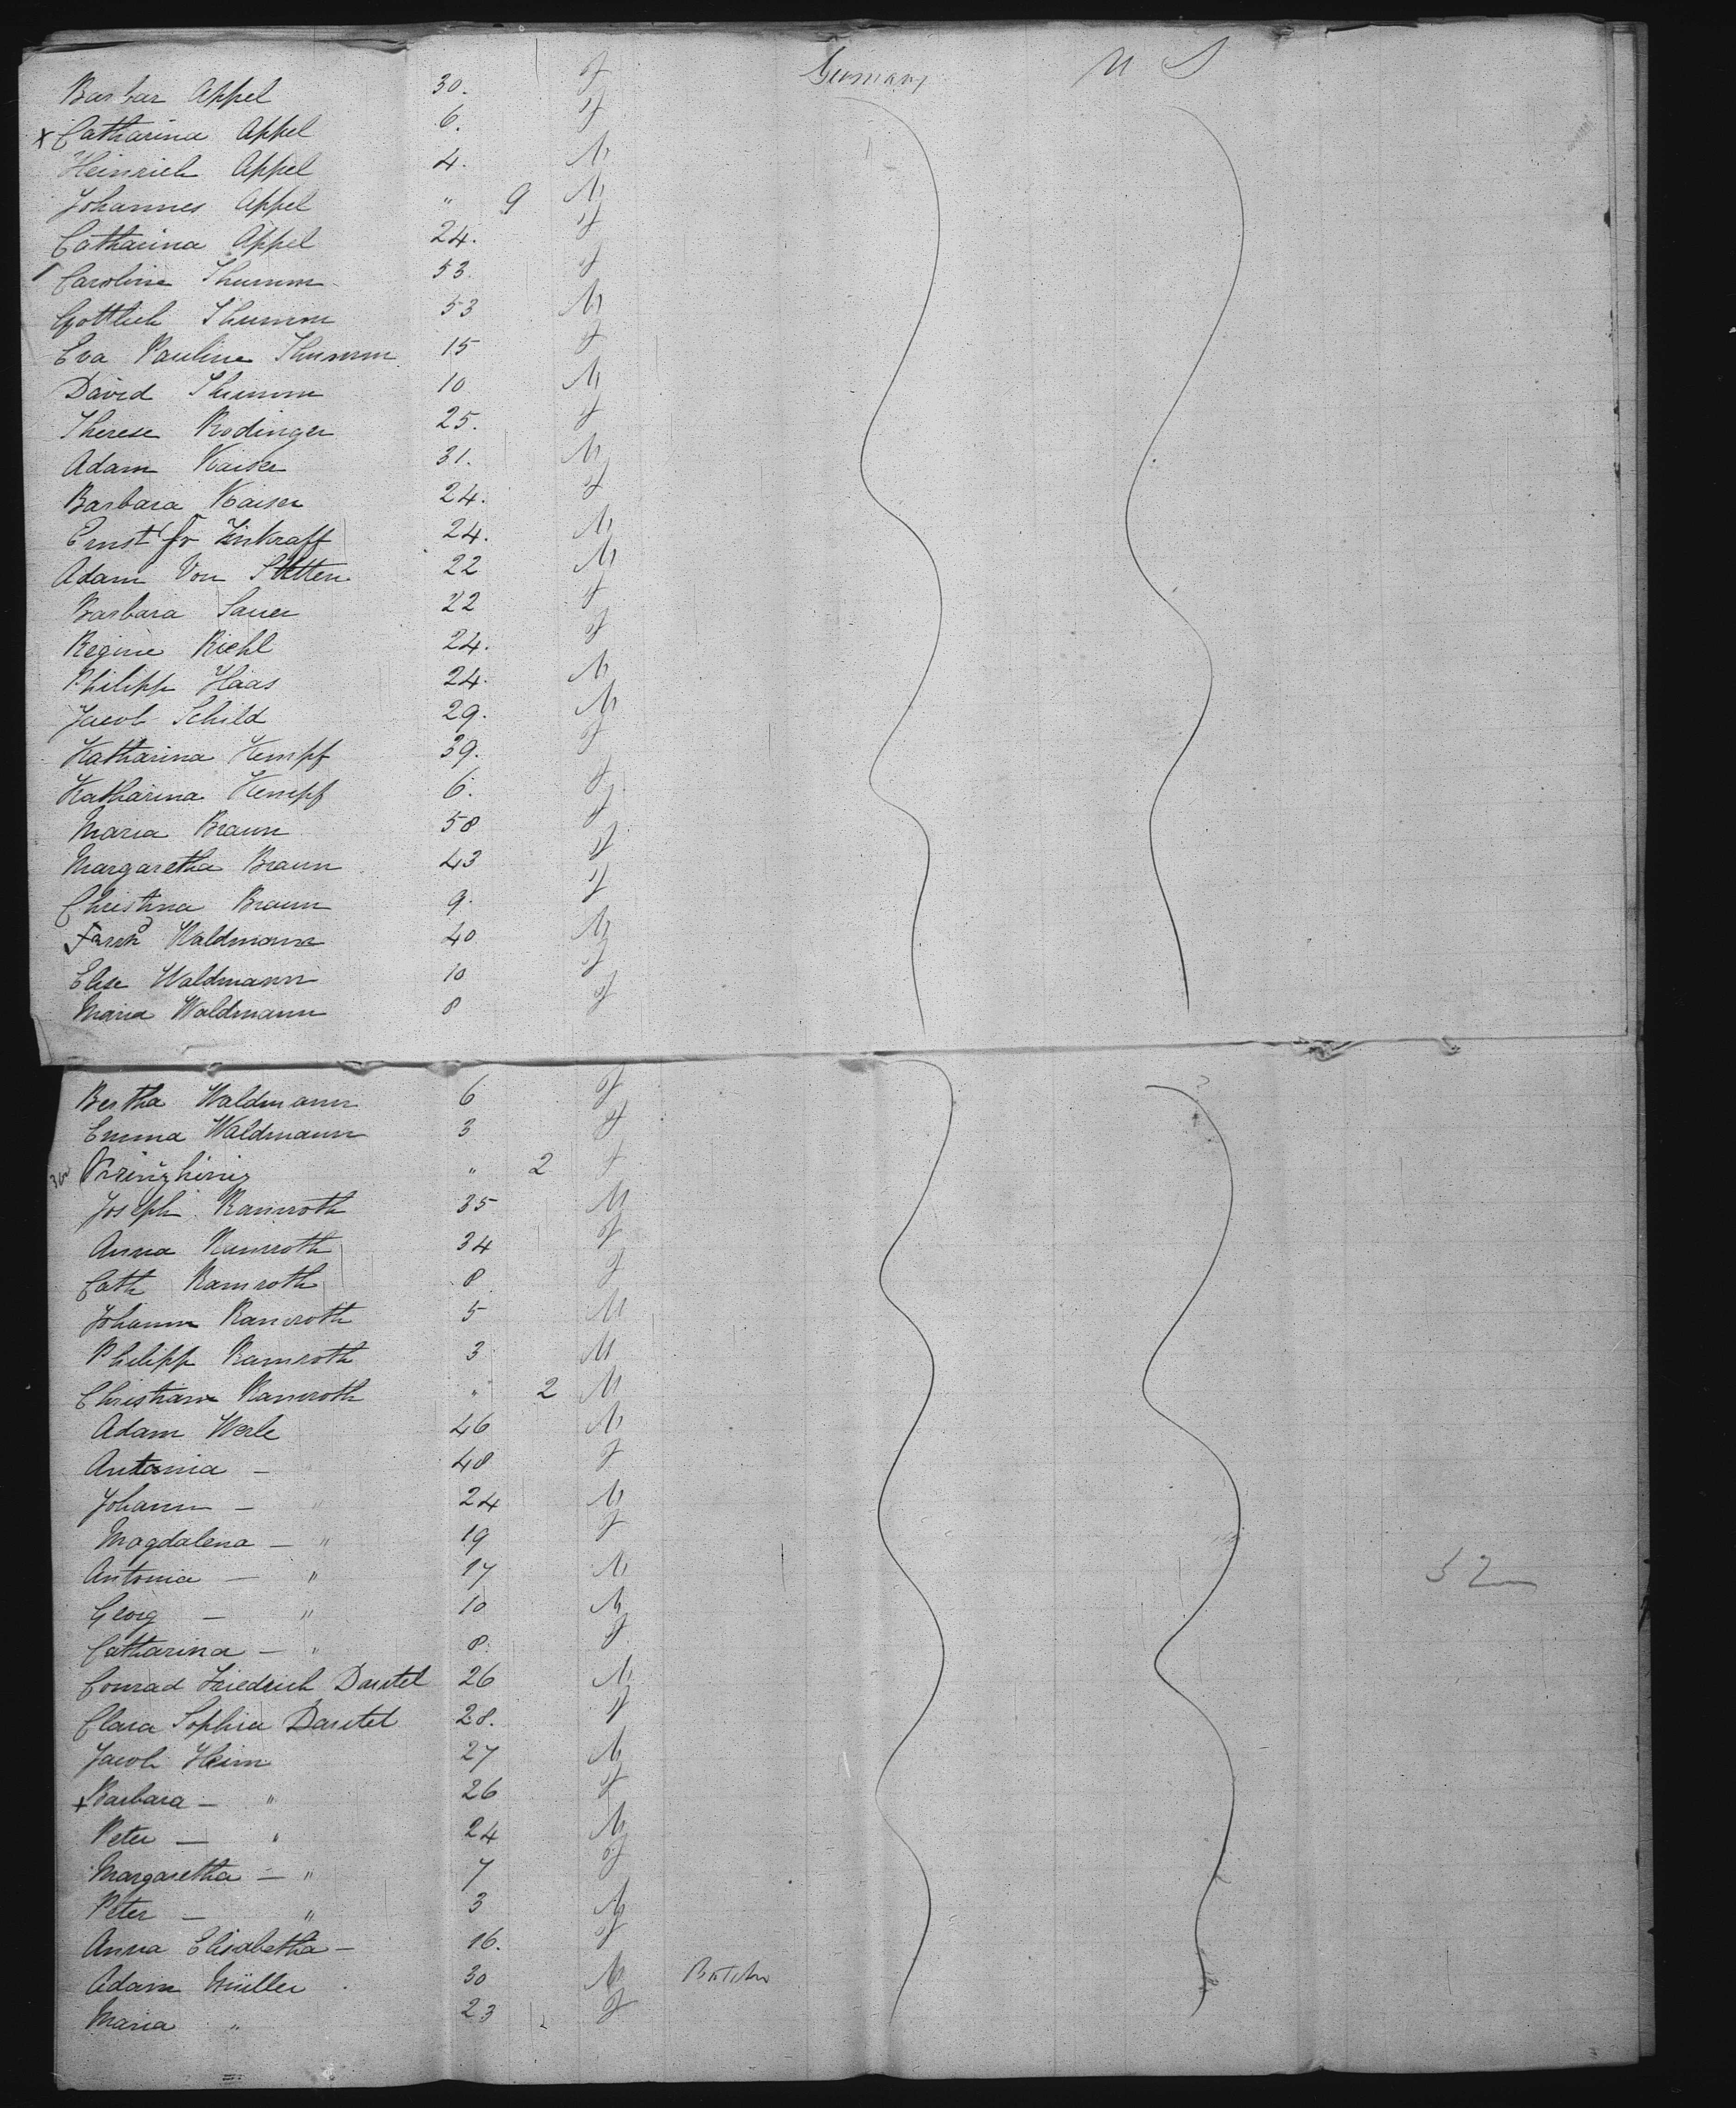 Barbar Appel 30. f Germany U S
x Catharina Appel 6. f
Heinrich Appel 4. M
Johannes Appel " 9 M
Catharina Appel 24. f
Caroline Thumm 53. f
Gottlieb Thumm 53 M
Eva Pauline Thumm 15 f
David Thumm 10 M
Therese Rodinger 25. f
Adam Kaiser 31. M
Barbara Kaiser 24. f
Ernst Fr Zinkraff 24. M
Adam Von Stetten 22 M
Barbara Sauer 22 f
Regine Riehl 24. f
Philipp Haas 24. M
Jacob Schild 29. M
Katharina Kempf 39. f
Katharina Kempf 6. f
Maria Braun 58 f
Margaretha Braun 43 f
Christina Braun 9. f
Waldmann 40 M
Elise Waldmann 10 f
Maria Waldmann 8 f
Bertha Waldmann 6 f
Emma Waldmann 3 f
" 2 f
Joseph Ramroth 35 M
Anna Ramroth 34 f
Cath Ramroth 8 f
Johann Ramroth 5 M
Philipp Ramroth 3 M
Christian Ramroth " 2 M
Adam Werle 46 M
Antonia — " 48 f
Johann — " 24 M
Magdalena — " 19 f
Antonia — " 17 M
Georg — " 10 M
Catharina — " 8. f
Conrad Friedrich Dautel 26 M
Clara Sophia Dautel 28. f
Jacob Heim 27 M
x Barbara — " 26 f
Peter — " 24 M
Margaretha — " 7 f
Peter — " 3 M
Anna Elisabetha — 16. f
Adam Müller 30 M
Maria " 23 f
52